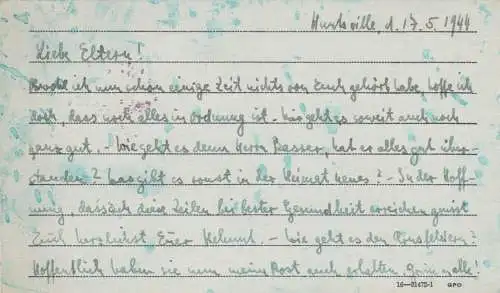 Huntsville, d. 17.5.1944
Liebe Eltern!
Obwohl ich nun schon einige Zeit nichts von Euch gehört habe, hoffe ich
doch, dass noch alles in Ordnung ist. - Mir geht es soweit auch noch
ganz gut. - Wie geht es denn Herrn Basser, hat er alles gut über-
standen? Was gibt es sonst in der Heimat neues? - In der Hoff-
nung, dass Euch diese Zeilen bei bester Gesundheit erreichen grüsst
Euch herzlichst Euer Helmut. - Wie geht es den ?
Hoffentlich haben sie nun meine Post auch erhalten. Grüsse alle.
16—31473-1 GPO